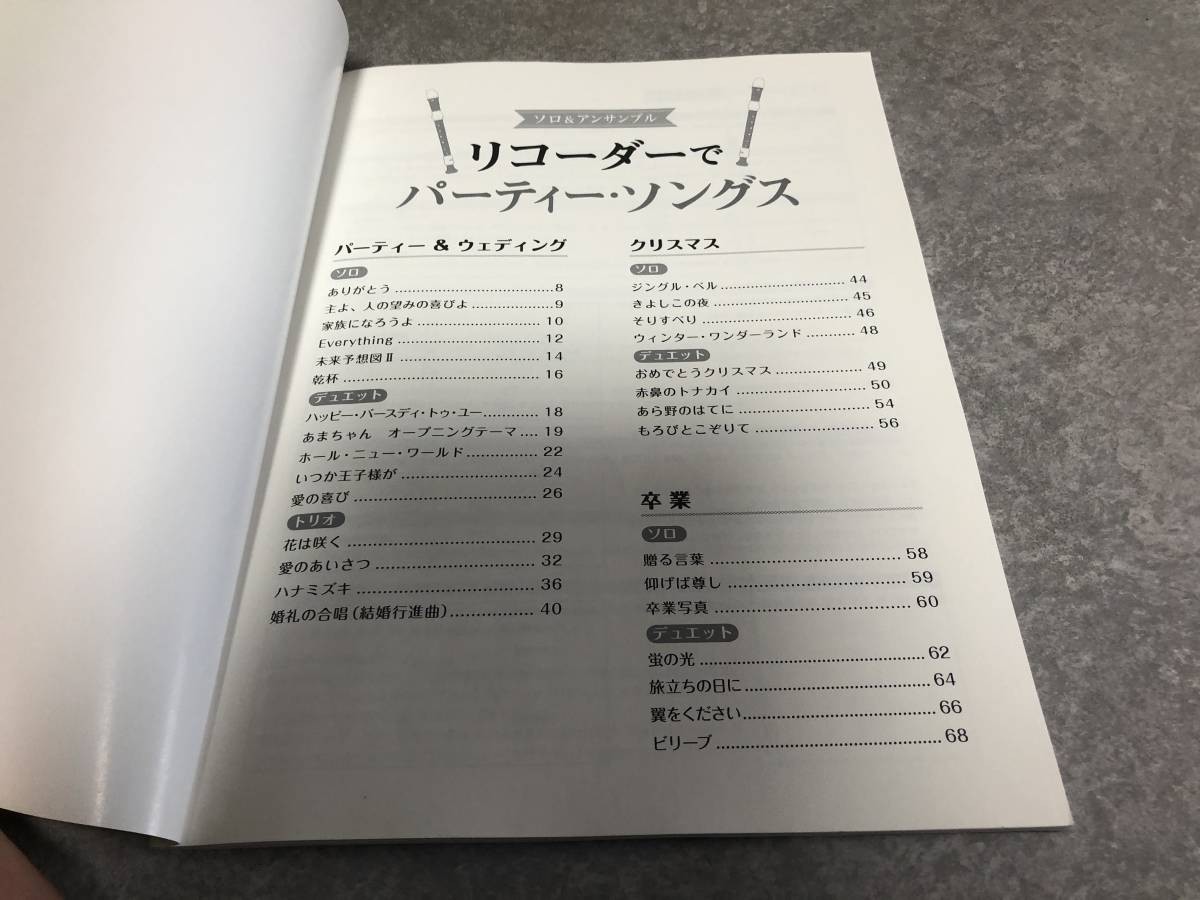 ソロ&アンサンブル
リコーダーで
パーティー・ソングス
パーティー & ウェディング
ソロ
ありがとう 8
主よ、人の望みの喜びよ 9
家族になろうよ 10
Everything 12
未来予想図Ⅱ 14
乾杯 16
デュエット
ハッピー・バースディ・トゥ・ユー 18
あまちゃん オープニングテーマ 19
ホール・ニュー・ワールド 22
いつか王子様が 24
愛の喜び 26
トリオ
花は咲く 29
愛のあいさつ 32
ハナミズキ 36
婚礼の合唱(結婚行進曲) 40
クリスマス
ソロ
ジングル・ベル 44
きよしこの夜 45
そりすべり 46
ウィンター・ワンダーランド 48
デュエット
おめでとうクリスマス 49
赤鼻のトナカイ 50
あら野のはてに 54
もろびとこぞりて 56
卒業
ソロ
贈る言葉 58
仰げば尊し 59
卒業写真 60
デュエット
蛍の光 62
旅立ちの日に 64
翼をください 66
ビリーブ 68